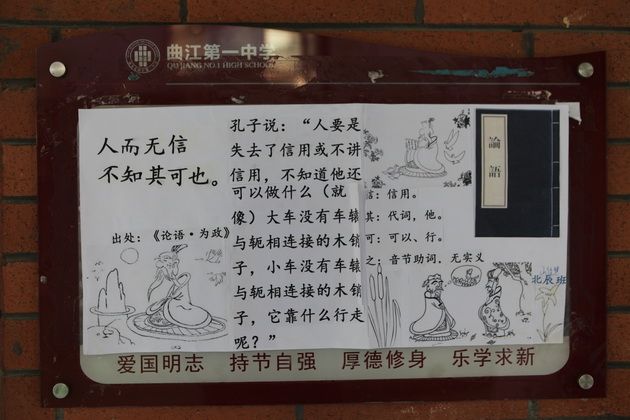 曲江第一中学
QU JIANG NO.1 HIGH SCHOOL
人而无信
不知其可也。
出处：《论语·为政》
孔子说：“人要是
失去了信用或不讲
信用，不知道他还
可以做什么（就
像）大车没有车辕
与轭相连接的木销
子，小车没有车辕
与轭相连接的木销
子，它靠什么行走
呢？”
信：信用。
其：代词，他。
可：可以、行。
之：音节助词．无实义
論語
北辰班
爱国明志 持节自强 厚德修身 乐学求新